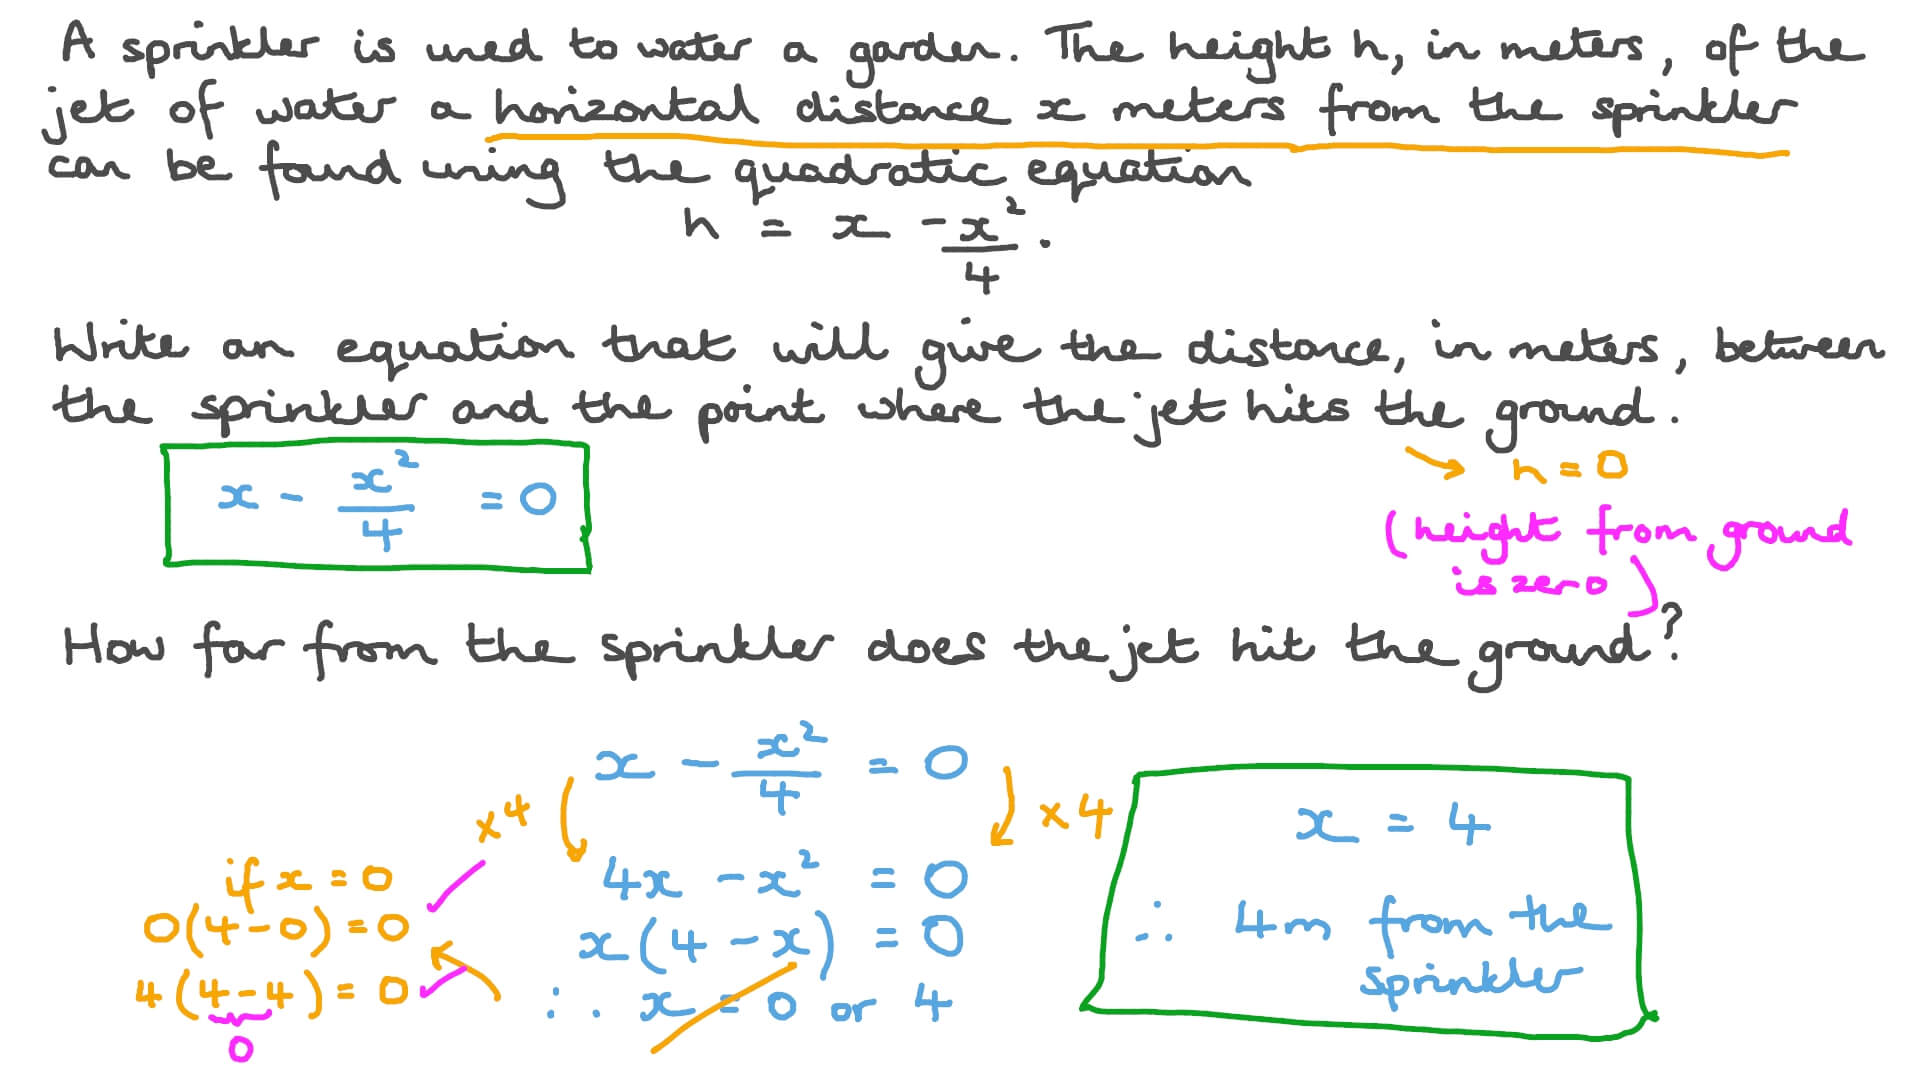 A sprinkler is used to water a garden. The height h, in meters, of the
jet of water a horizontal distance x meters from the sprinkler
can be found using the quadratic equation
h = x - x²/4.
Write an equation that will give the distance, in meters, between
the sprinkler and the point where the jet hits the ground.
→ h = 0
x - x²/4 = 0
(height from ground
is zero)
How far from the sprinkler does the jet hit the ground?
x - x²/4 = 0
×4 ×4
4x - x² = 0
x(4 - x) = 0
∴ x = 0 or 4
if x = 0
0(4-0) = 0
4(4-4) = 0
0
x = 4
∴ 4m from the
sprinkler